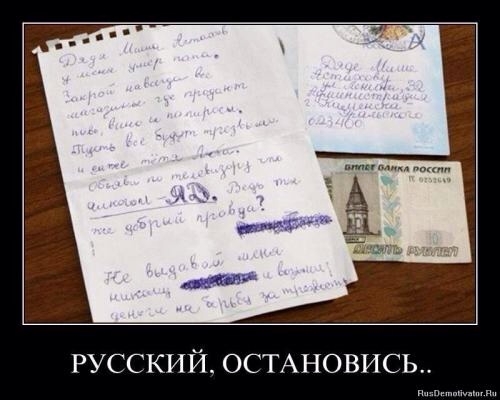 Дядя Миша Астахов
у меня умер папа.
Закрой навсегда все
магазины где продают
пиво, вино и папиросы.
Пусть все будут трезвыми
и даже тётя
Объяви по телевизору что
алкоголь - ЯД. Ведь ты
же добрый правда?
Не выдавай меня
никому и возьми
деньги на борьбу за трезвость
Дяде Мише
Астахову
ул. Ленина, 32
Администрация
г. Каменска
Уральского
623400.
БИЛЕТ БАНКА РОССИИ
0252649
ДЕСЯТЬ РУБЛЕЙ
РУССКИЙ, ОСТАНОВИСЬ..
RusDemotivator.Ru